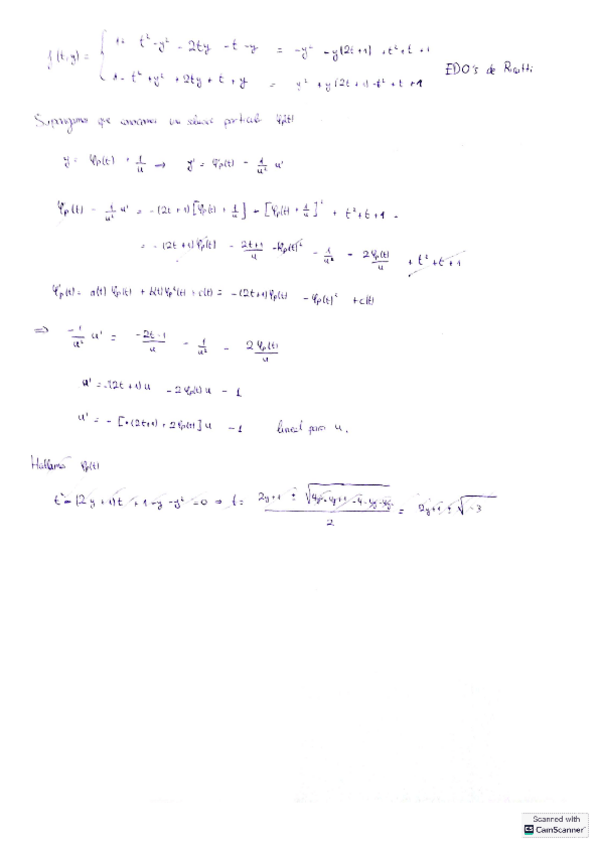 f(t,y) = { 1+ t² - y² - 2ty - t - y = -y² - y(2t+1) + t² + t + 1
1 - t² + y² + 2ty + t + y = y² + y(2t+1) - t² + t + 1 EDO's de Riccatti
Supongamos que conocemos una solución particular φp(t)
y = φp(t) + 1/u → y' = φp'(t) - 1/u² u'
φp'(t) - 1/u² u' = -(2t+1)[φp(t) + 1/u] - [φp(t) + 1/u]² + t² + t + 1 =
= -(2t+1)φp(t) - 2t+1/u - φp(t)² - 1/u² - 2φp(t)/u + t² + t + 1
φp'(t) = a(t) φp(t) + b(t)φp²(t) + c(t) = -(2t+1)φp(t) - φp(t)² + c(t)
⇒ -1/u² u' = -2t-1/u - 1/u² - 2φp(t)/u
u' = -(2t+1)u - 2φp(t)u - 1
u' = -[+(2t+1) + 2φp(t)]u - 1 lineal para u.
Hallamos φp(t)
t² - (2y+1)t + 1 - y - y² = 0 ⇒ t = 2y+1 ± √ / 2 = 2y+1 ± √-3
Scanned with
CamScanner